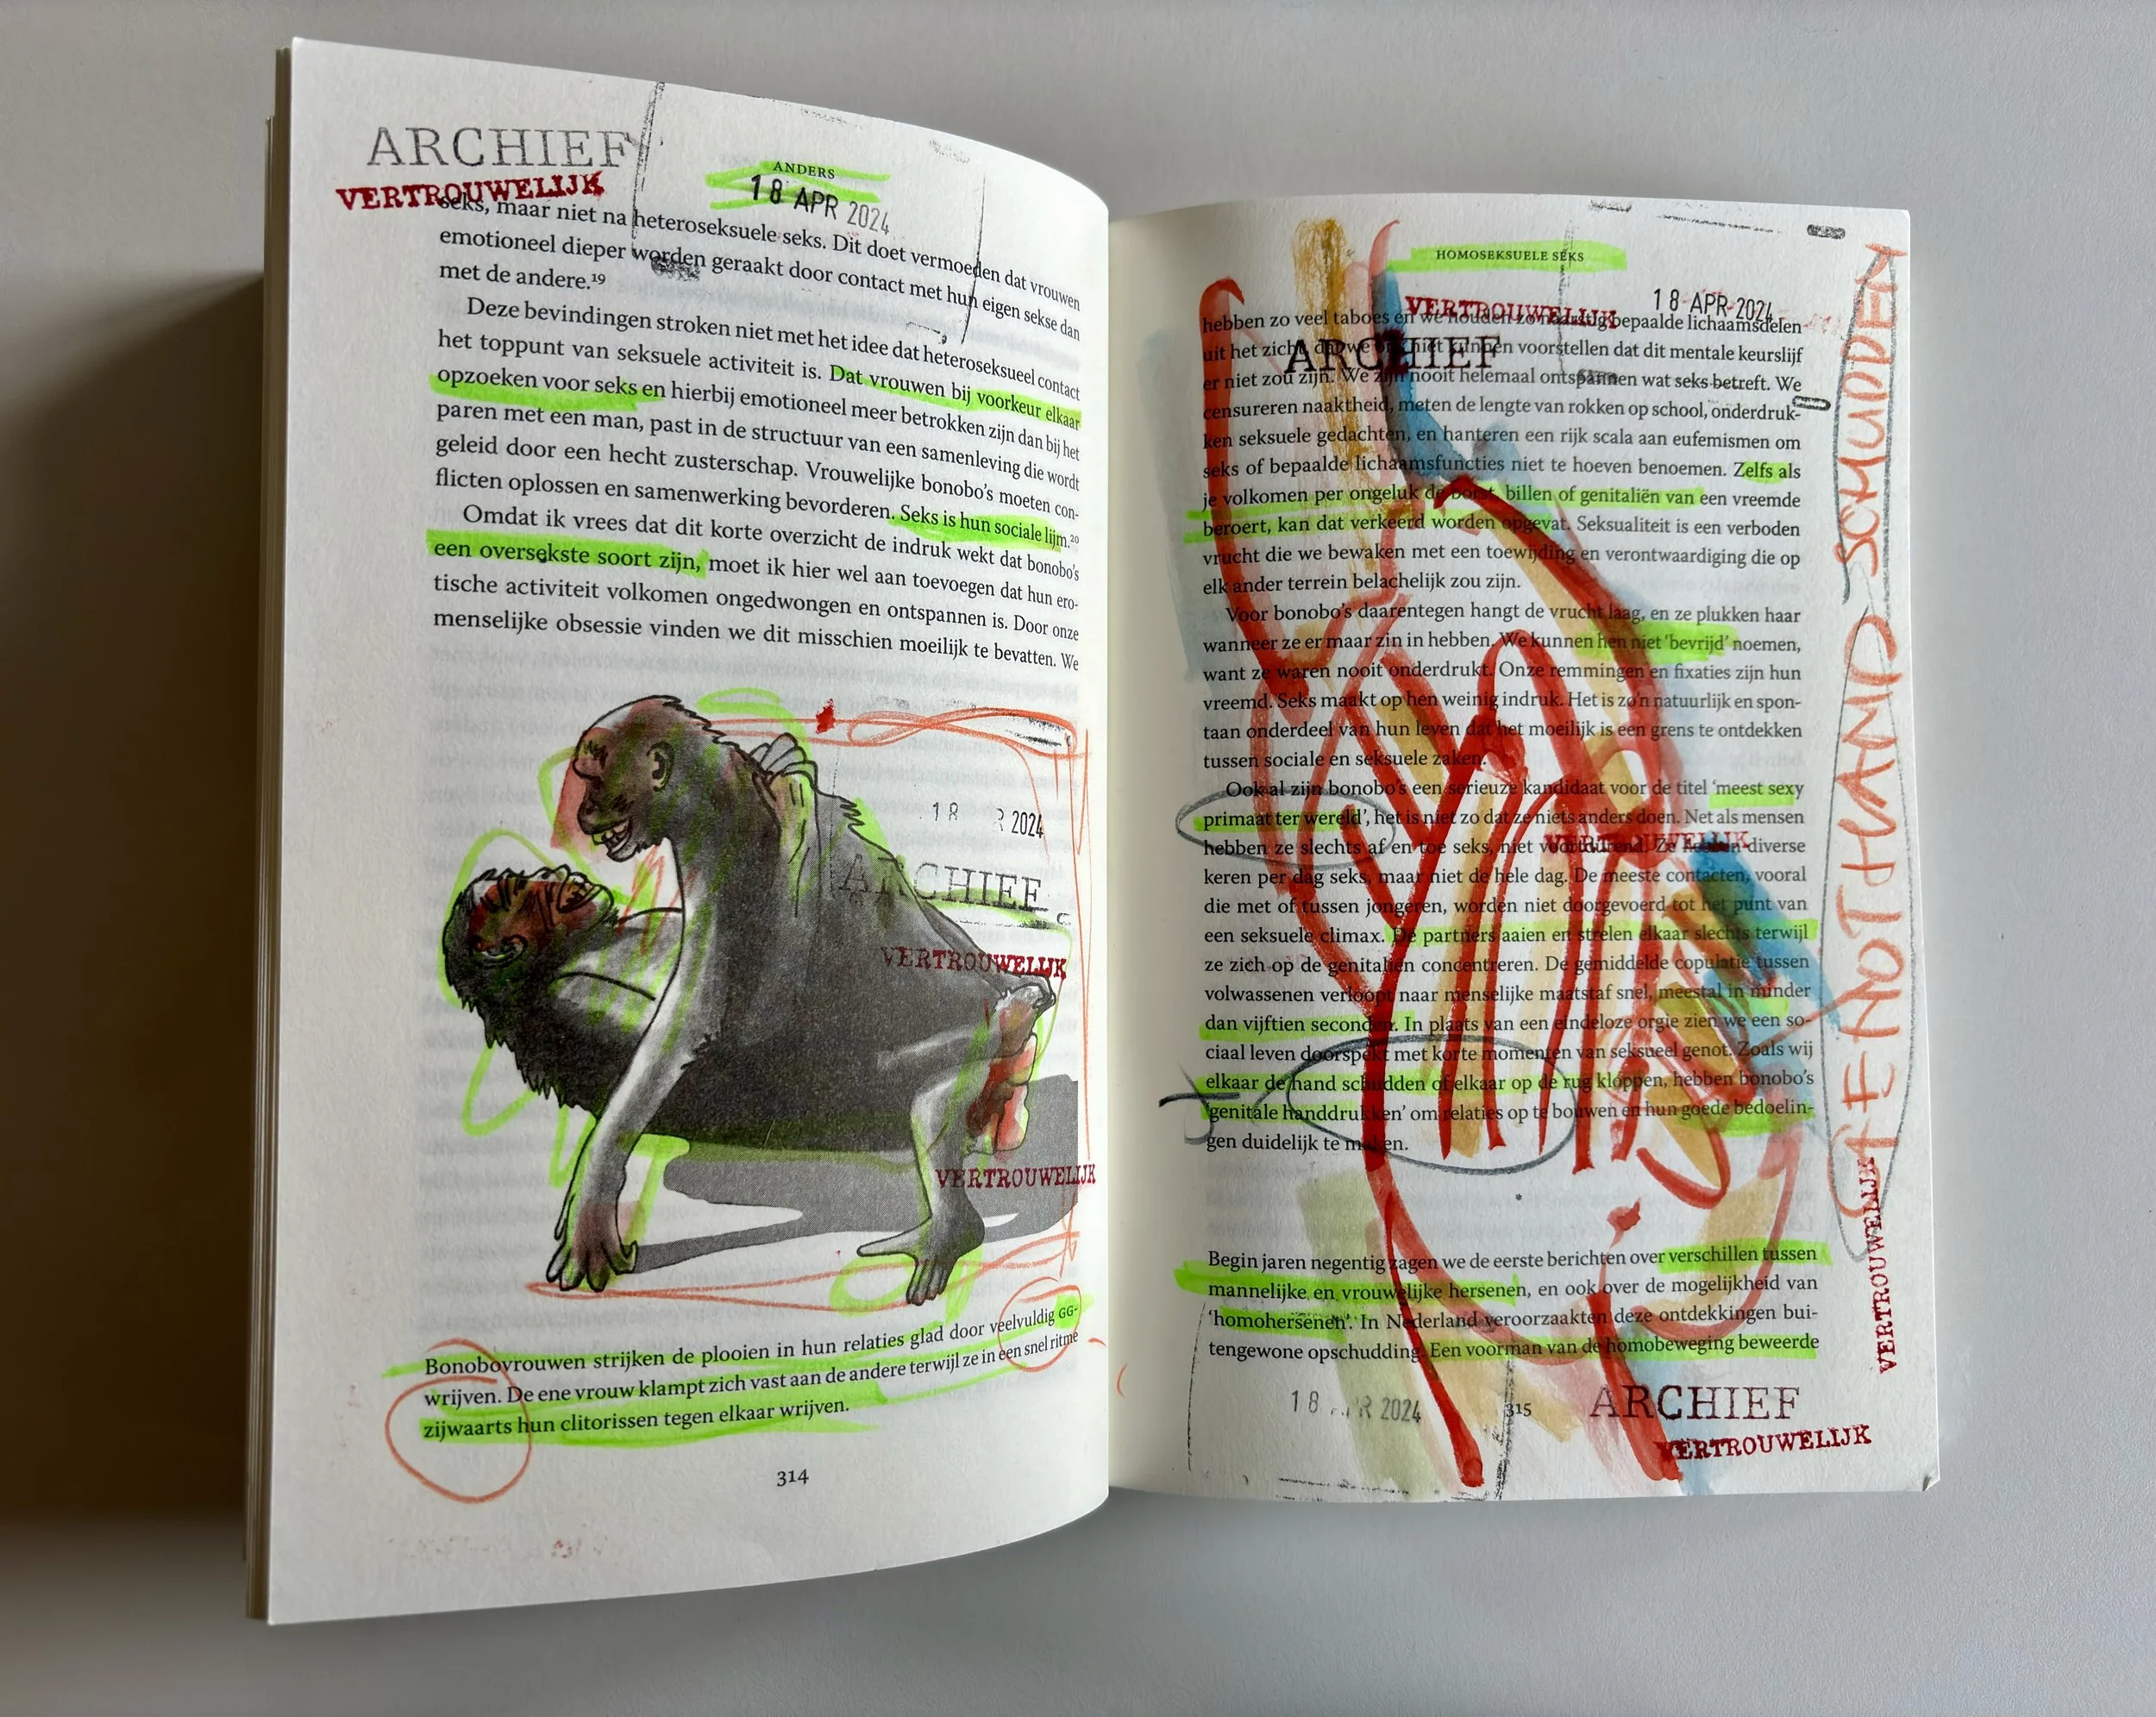 ARCHIEF
VERTROUWELIJK
ANDERS
18 APR 2024
seks, maar niet na heteroseksuele seks. Dit doet vermoeden dat vrouwen
emotioneel dieper worden geraakt door contact met hun eigen sekse dan
met de andere.¹⁹
Deze bevindingen stroken niet met het idee dat heteroseksueel contact
het toppunt van seksuele activiteit is. Dat vrouwen bij voorkeur elkaar
opzoeken voor seks en hierbij emotioneel meer betrokken zijn dan bij het
paren met een man, past in de structuur van een samenleving die wordt
geleid door een hecht zusterschap. Vrouwelijke bonobo's moeten con-
flicten oplossen en samenwerking bevorderen. Seks is hun sociale lijm.²⁰
Omdat ik vrees dat dit korte overzicht de indruk wekt dat bonobo's
een oversekste soort zijn, moet ik hier wel aan toevoegen dat hun ero-
tische activiteit volkomen ongedwongen en ontspannen is. Door onze
menselijke obsessie vinden we dit misschien moeilijk te bevatten. We
18 R 2024
ARCHIEF
VERTROUWELIJK
VERTROUWELIJK
Bonobovrouwen strijken de plooien in hun relaties glad door veelvuldig GG-
wrijven. De ene vrouw klampt zich vast aan de andere terwijl ze in een snel ritme
zijwaarts hun clitorissen tegen elkaar wrijven.
314
HOMOSEKSUELE SEKS
18 APR 2024
VERTROUWELIJK
ARCHIEF
hebben zo veel taboes en we houden zo naarstig bepaalde lichaamsdelen
uit het zicht dat we ons niet kunnen voorstellen dat dit mentale keurslijf
er niet zou zijn. We zijn nooit helemaal ontspannen wat seks betreft. We
censureren naaktheid, meten de lengte van rokken op school, onderdruk-
ken seksuele gedachten, en hanteren een rijk scala aan eufemismen om
seks of bepaalde lichaamsfuncties niet te hoeven benoemen. Zelfs als
je volkomen per ongeluk de borst, billen of genitaliën van een vreemde
beroert, kan dat verkeerd worden opgevat. Seksualiteit is een verboden
vrucht die we bewaken met een toewijding en verontwaardiging die op
elk ander terrein belachelijk zou zijn.
Voor bonobo's daarentegen hangt de vrucht laag, en ze plukken haar
wanneer ze er maar zin in hebben. We kunnen hen niet 'bevrijd' noemen,
want ze waren nooit onderdrukt. Onze remmingen en fixaties zijn hun
vreemd. Seks maakt op hen weinig indruk. Het is zo'n natuurlijk en spon-
taan onderdeel van hun leven dat het moeilijk is een grens te ontdekken
tussen sociale en seksuele zaken.
Ook al zijn bonobo's een serieuze kandidaat voor de titel 'meest sexy
primaat ter wereld', het is niet zo dat ze niets anders doen. Net als mensen
hebben ze slechts af en toe seks, niet voortdurend. Ze hebben diverse
keren per dag seks, maar niet de hele dag. De meeste contacten, vooral
die met of tussen jongeren, worden niet doorgevoerd tot het punt van
een seksuele climax. De partners aaien en strelen elkaar slechts terwijl
ze zich op de genitaliën concentreren. De gemiddelde copulatie tussen
volwassenen verloopt naar menselijke maatstaf snel, meestal in minder
dan vijftien seconden. In plaats van een eindeloze orgie zien we een so-
ciaal leven doorspekt met korte momenten van seksueel genot. Zoals wij
elkaar de hand schudden of elkaar op de rug kloppen, hebben bonobo's
'genitale handdrukken' om relaties op te bouwen en hun goede bedoelin-
gen duidelijk te maken.
VERTROUWELIJK
Begin jaren negentig zagen we de eerste berichten over verschillen tussen
mannelijke en vrouwelijke hersenen, en ook over de mogelijkheid van
'homohersenen'. In Nederland veroorzaakten deze ontdekkingen bui-
tengewone opschudding. Een voorman van de homobeweging beweerde
18 R 2024
315
ARCHIEF
VERTROUWELIJK
VERTROUWELIJK